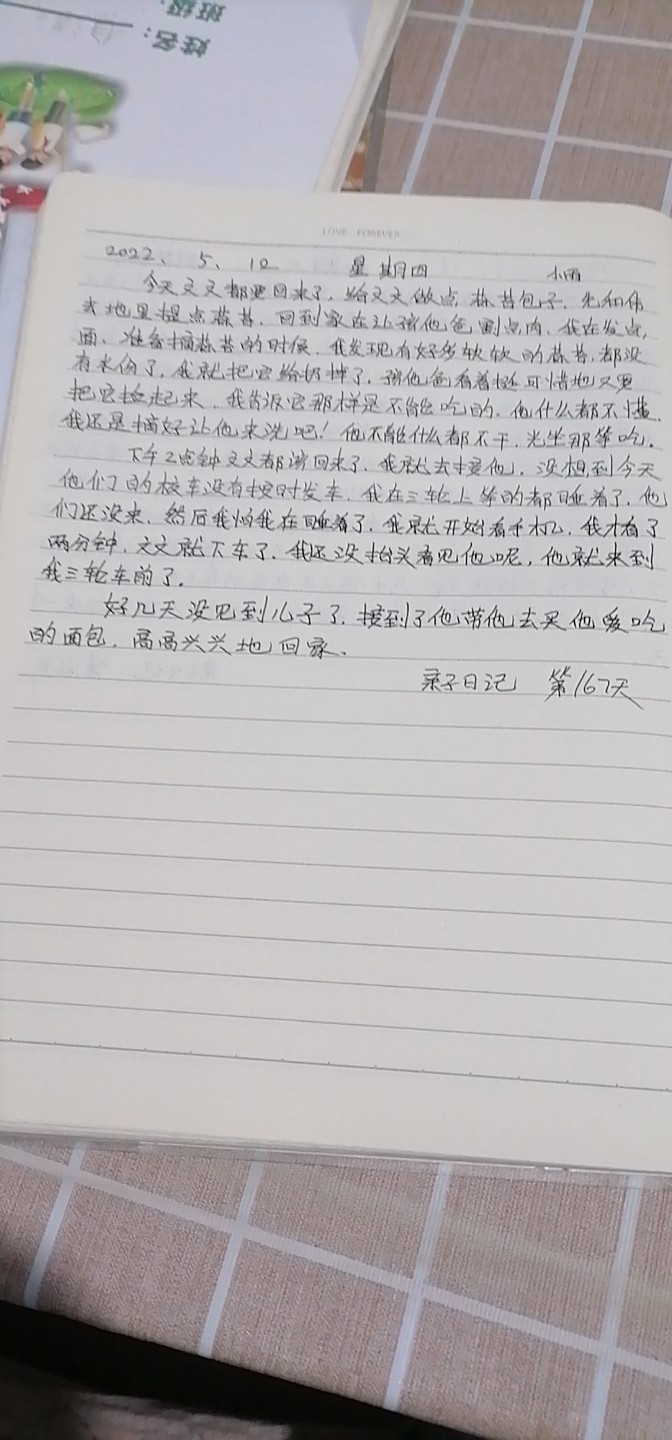 班级:
姓名:
LOVE FOREVER
2022、5、12 星期四 小雨
今天文文都要回来了，给文文做点蒜苔包子，先和伟
去地里提点蒜苔，回到家在让孩他爸割点肉，我在发点
面，准备摘蒜苔的时候，我发现有好多软软的蒜苔，都没
有水份了，我就把它给扔掉了，孩他爸看着挺可惜地又要
把它捡起来，我告诉它那样是不能吃的，他什么都不懂，
我还是摘好让他来洗吧！他不能什么都不干，光坐那等吃。
下午2点钟文文都该回来了，我就去接他，没想到今天
他们的校车没有按时发车，我在三轮上等的都睡着了，他
们还没来，然后我怕我在睡着了，我就开始看手机，我才看了
两分钟，文文就下车了，我还没抬头看见他呢，他就来到
我三轮车前了。
好几天没见到儿子了，接到了他带他去买他爱吃
的面包，高高兴兴地回家、
亲子日记 第167天